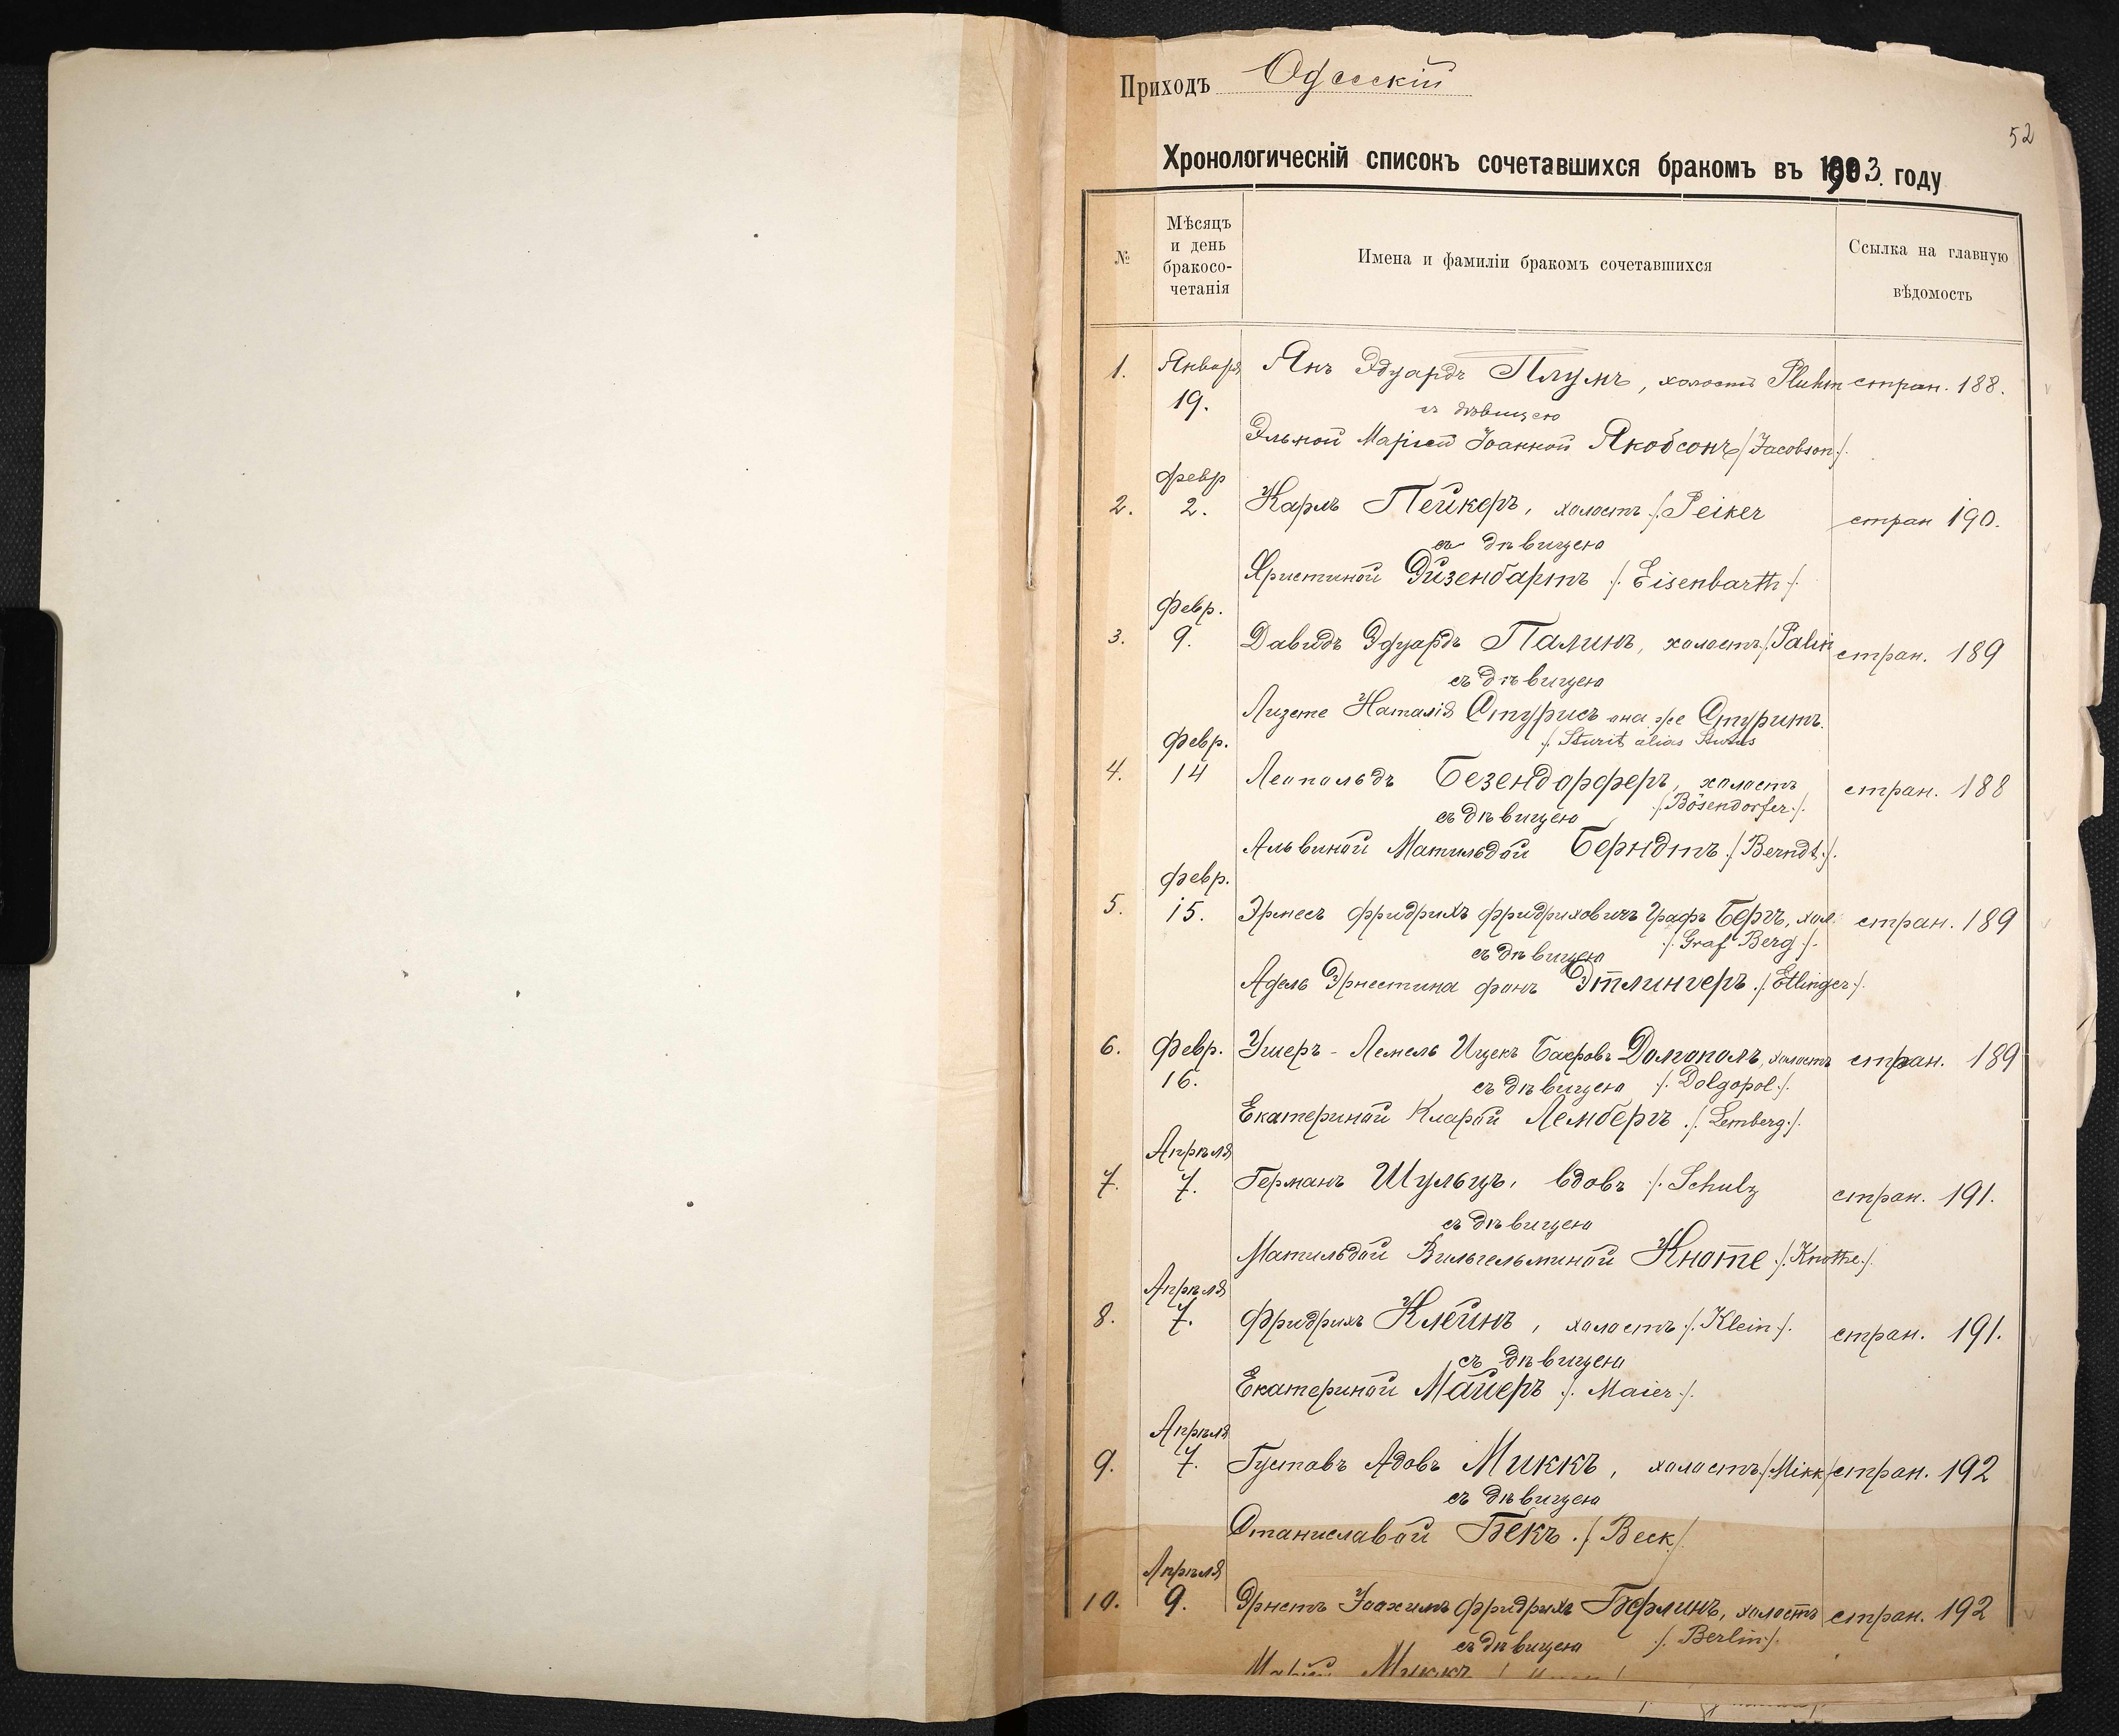 Приходъ Одесскій
52
Хронологическій списокъ сочетавшихся бракомъ въ 1903. году
№
Мѣсяцъ
и день
бракосо-
четанія
Имена и фамиліи бракомъ сочетавшихся
Ссылка на главную
вѣдомость
1. Января Янъ Эдуардъ Плумъ, холостъ Pluhm стран. 188.
19. съ дѣвицею
Эльмой Маріей Іоанной Якобсонъ /Jacobson/.
февр
2. 2. Карлъ Пейкеръ, холостъ /. Peiker стран 190.
съ дѣвицею
Христиной Эйзенбартъ /. Eisenbarth /.
Февр.
3. 9. Давидъ Эдуардъ Палинъ, холостъ /. Palin стран. 189
съ дѣвицею
Лизете Наталія Стурисъ она же Стуритъ.
/. Sturit alias Sturis
Февр.
4. 14 Леопольдъ Безендорферъ, холостъ стран. 188
съ дѣвицею /. Bösendorfer /.
Альвиной Матильдой Берндтъ /. Berndt /.
февр.
5. 15. Эрнестъ Фридрихъ Фридриховичъ Графъ Бергъ, хол. стран. 189
съ дѣвицею /. Graf Berg /.
Адель Эрнестина фонъ Этлингеръ /. Etlinger /.
6. Февр. Ушеръ-Лемель Ицекъ Долгополъ, холостъ стран. 189
16. съ дѣвицею /. Dolgopol /.
Екатериной Кларой Лембергъ /. Lemberg /.
Апрѣля
7. 7. Германъ Шульцъ, вдовъ /. Schulz стран. 191.
съ дѣвицею
Матильдой Вильгельминой Кноте /. Knothe /.
Апрѣля
8. 7. Фридрихъ Клейнъ, холостъ /. Klein /. стран. 191.
съ дѣвицею
Екатериной Майеръ /. Maier /.
Апрѣля
9. 7. Густавъ Адовъ Миккъ, холостъ /. Mikk / стран. 192
съ дѣвицею
Станиславой Бекъ /. Beck /
Апрѣля
10. 9. Эрнстъ Іоахимъ Фридрихъ Берлинъ, холостъ стран. 192
съ дѣвицею /. Berlin /.
Миккъ